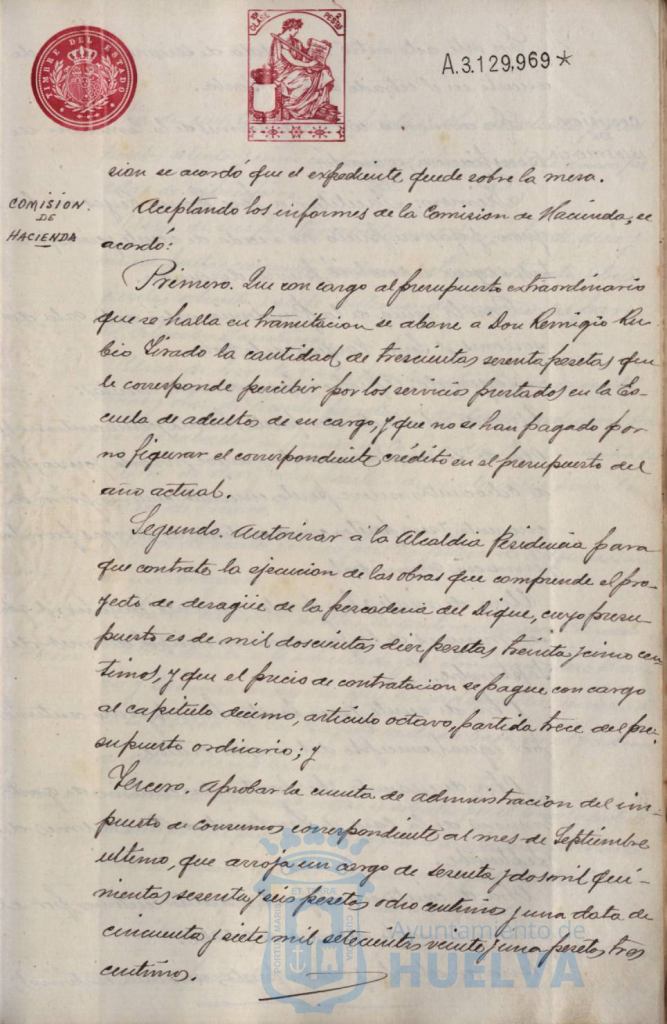 TIMBRE DEL ESTADO
10ª CLASE 2 PESETAS
A.3.129,969*
COMISION.
DE
HACIENDA
sion se acordó que el expediente quede sobre la mesa.
Aceptando los informes de la Comision de Hacienda, se
acordó:
Primero. Que con cargo al presupuesto extraordinario
que se halla en tramitacion se abone á Don Remigio Ru-
bio Tirado la cantidad de trescientas sesenta pesetas que
le corresponde percibir por los servicios prestados en la Es-
cuela de adultos de su cargo, y que no se han pagado por
no figurar el correspondiente crédito en el presupuesto del
año actual.
Segundo. Autorizar á la Alcaldia Presidencia para
que contrate la ejecucion de las obras que comprende el pro-
yecto de desagüe de la pescaderia del Dique, cuyo presu-
puesto es de mil doscientas diez pesetas treinta y cinco cen-
timos, y que el precio de contratacion se pague con cargo
al capitulo décimo, articulo octavo, partida trece del pre-
supuesto ordinario; y
Tercero. Aprobar la cuenta de administracion del im-
puesto de Consumos correspondiente al mes de Septiembre
ultimo, que arroja un cargo de sesenta y dos mil qui-
nientas sesenta y seis pesetas ocho centimos y una data de
cincuenta y siete mil setecientas veinte y una pesetas tres
centimos.
PORTUS MARIS ET TERRAE CUSTODIA
Ayuntamiento de
HUELVA